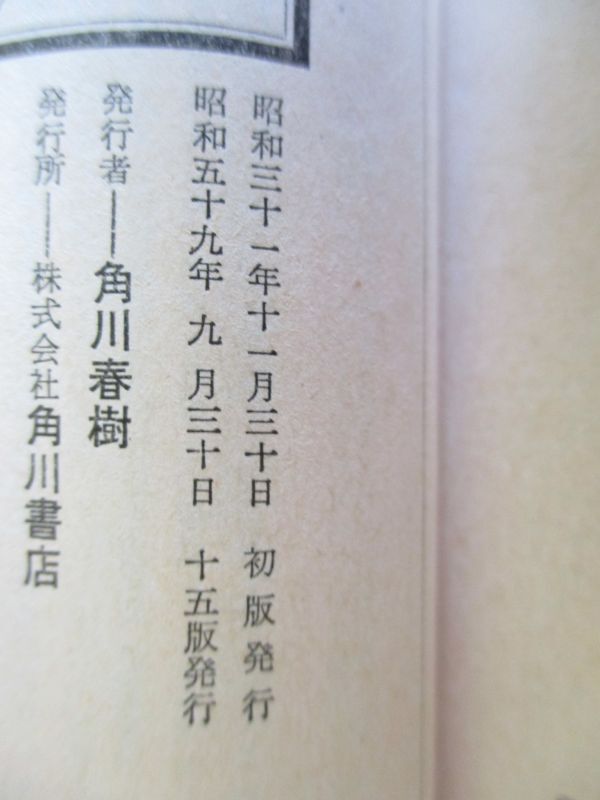 昭和三十一年十一月三十日　初版発行
昭和五十九年　九　月三十日　十五版発行
発行者――角川春樹
発行所――株式会社角川書店